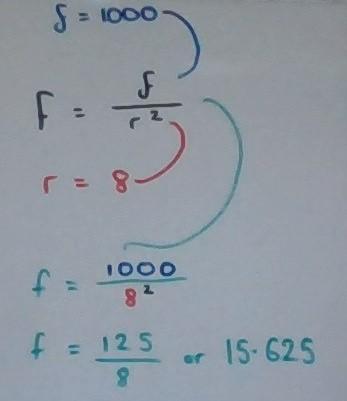 f = 1000
F = f / r²
r = 8
f = 1000 / 8²
f = 125 / 8 or 15·625